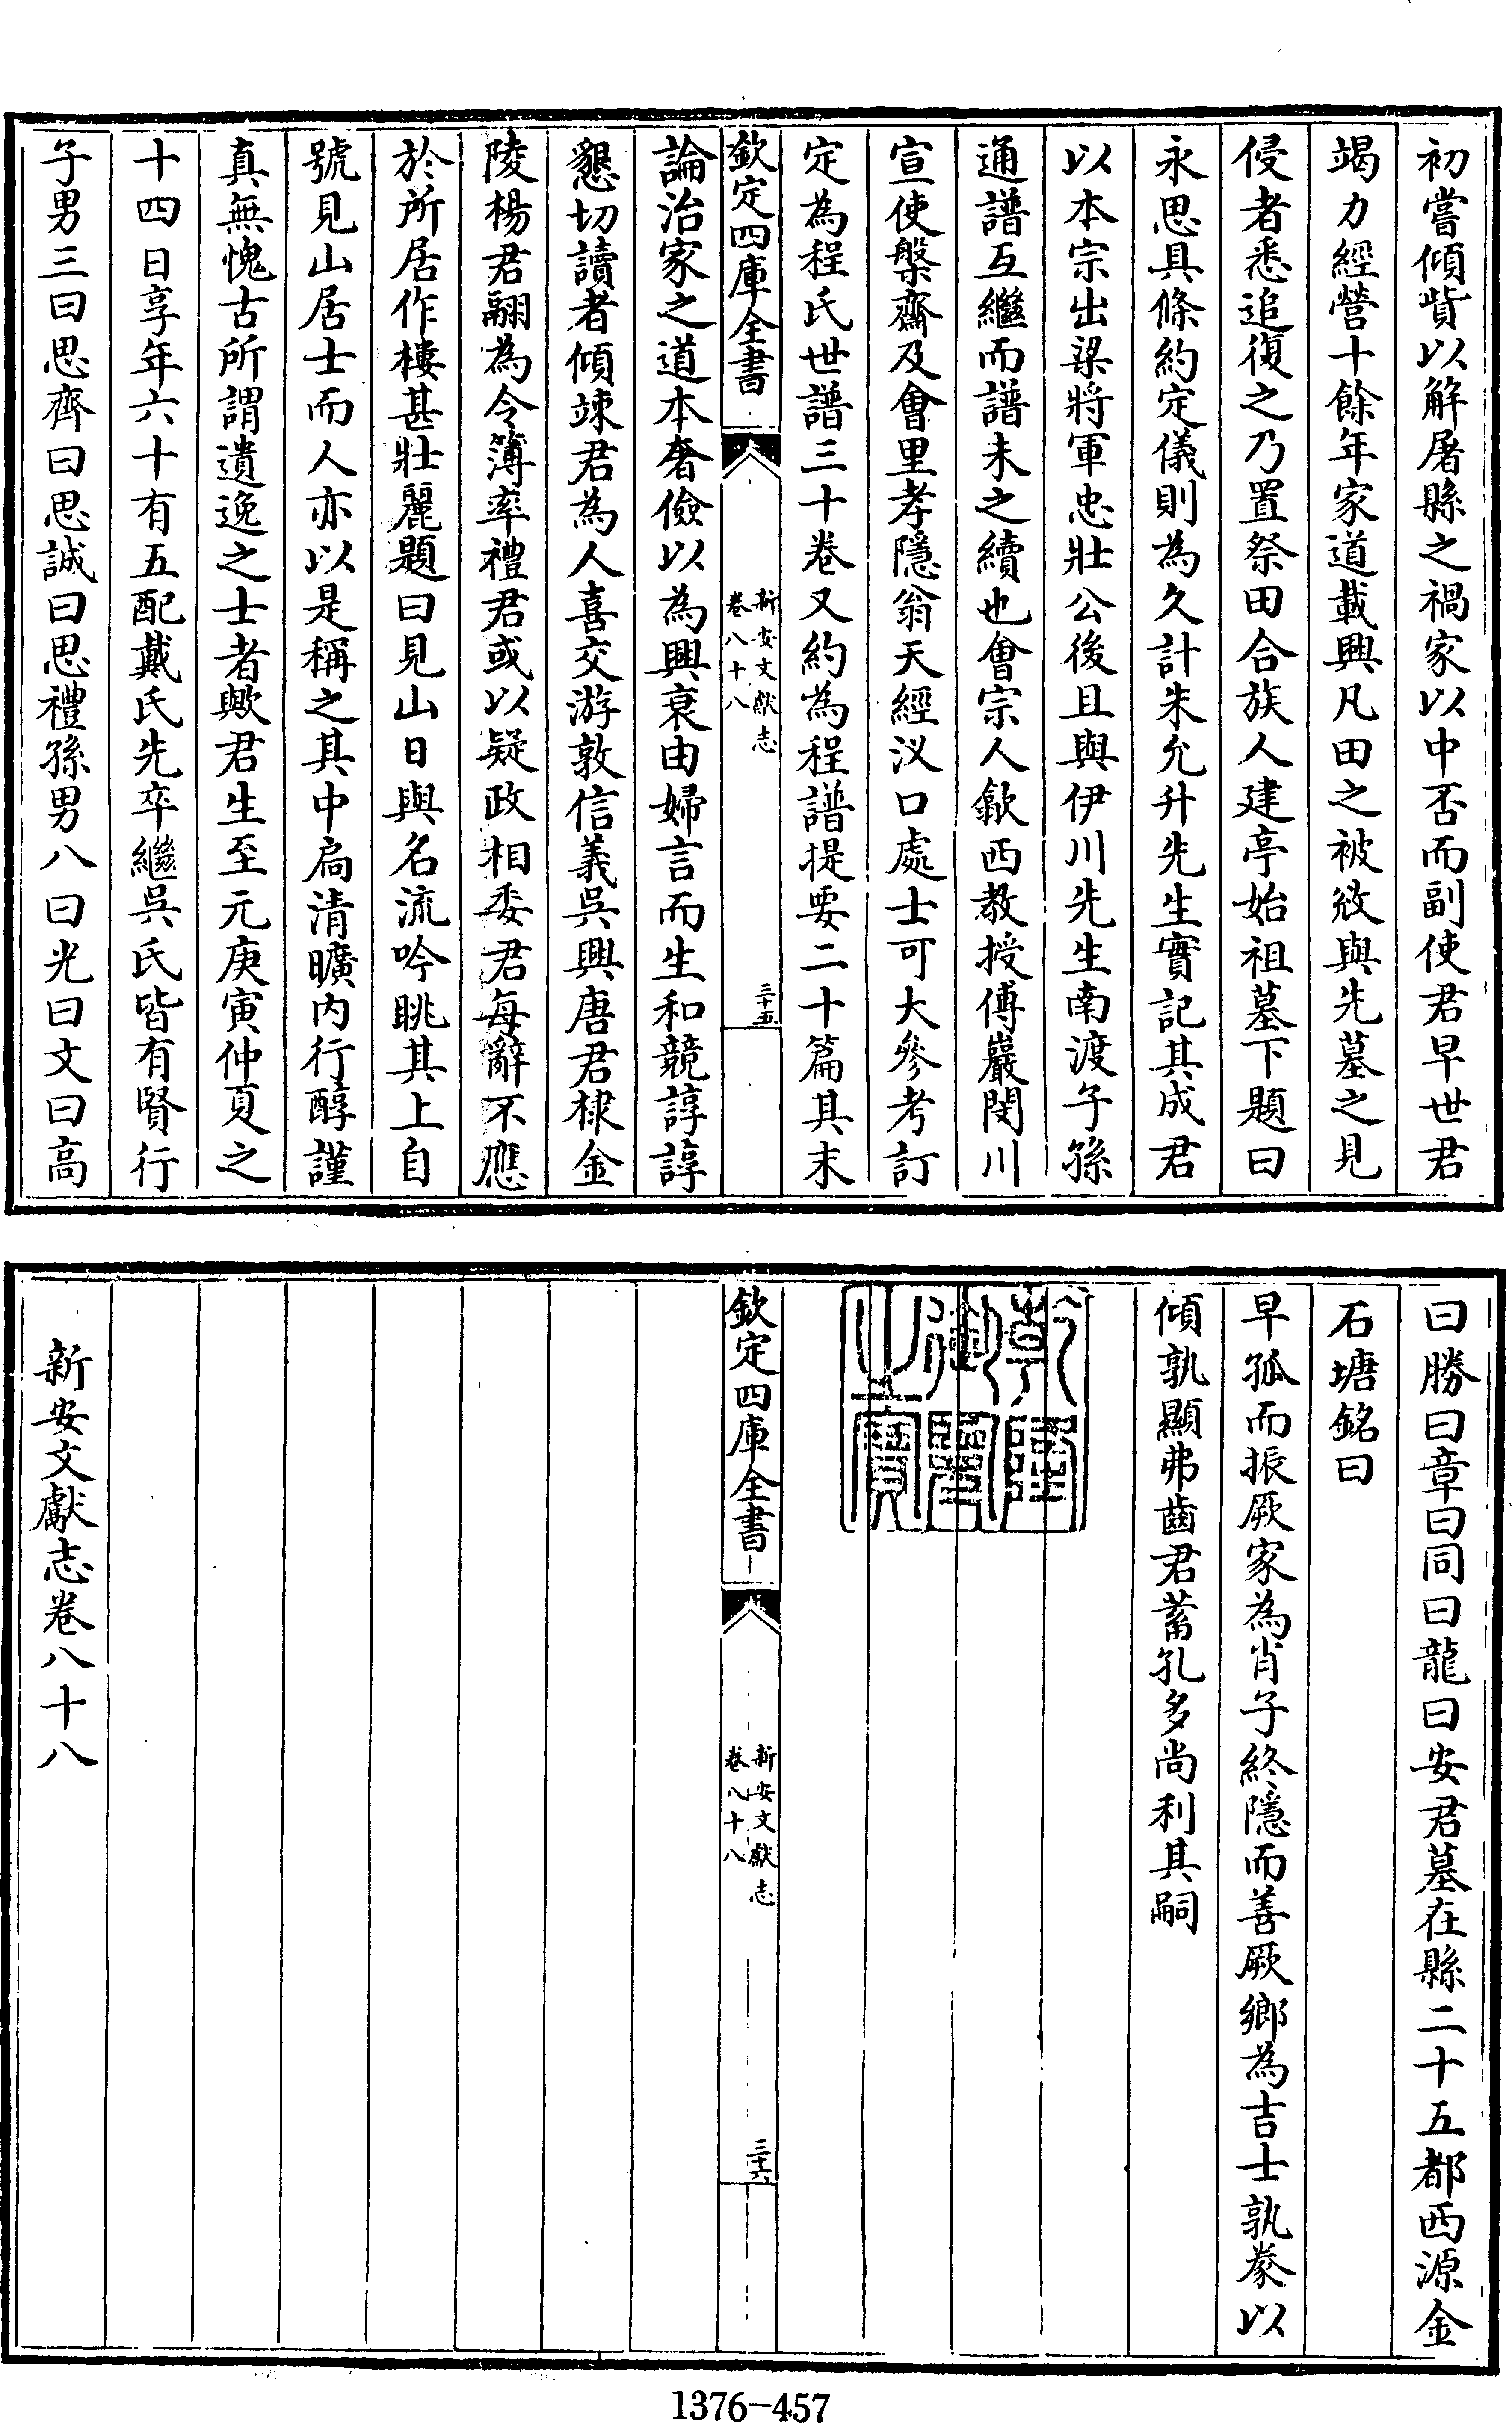 初嘗傾貲以解屠縣之禍家以中否而副使君早世君
竭力經營十餘年家道載興凡田之被攽與先墓之見
侵者悉追復之乃置祭田合族人建亭始祖墓下題曰
永思具條約定儀則為久計朱允升先生實記其成君
以本宗出梁將軍忠壯公後且與伊川先生南渡子孫
通譜互繼而譜未之續也會宗人歙西教授傅巖閔川
宣使槃齋及會里孝隱翁天經汊口處士可大參考訂
定為程氏世譜三十卷又約為程譜提要二十篇其末
欽定四庫全書
新安文獻志
卷八十八
三十五
論治家之道本奢儉以為興衰由婦言而生和競諄諄
懇切讀者傾竦君為人喜交游敦信義吳興唐君棣金
陵楊君翮為令簿率禮君或以疑政相委君每辭不應
於所居作樓甚壯麗題曰見山日與名流吟眺其上自
號見山居士而人亦以是稱之其中扃清曠內行醇謹
真無愧古所謂遺逸之士者歟君生至元庚寅仲夏之
十四日享年六十有五配戴氏先卒繼吳氏皆有賢行
子男三曰思齊曰思誠曰思禮孫男八曰光曰文曰高
曰勝曰章曰同曰龍曰安君墓在縣二十五都西源金
石塘銘曰
早孤而振厥家為肖子終隱而善厥鄉為吉士孰豢以
傾孰顯弗齒君蓄孔多尚利其嗣
乾隆御覽之寶
欽定四庫全書
新安文獻志
卷八十八
三十六
新安文獻志卷八十八
1376-457